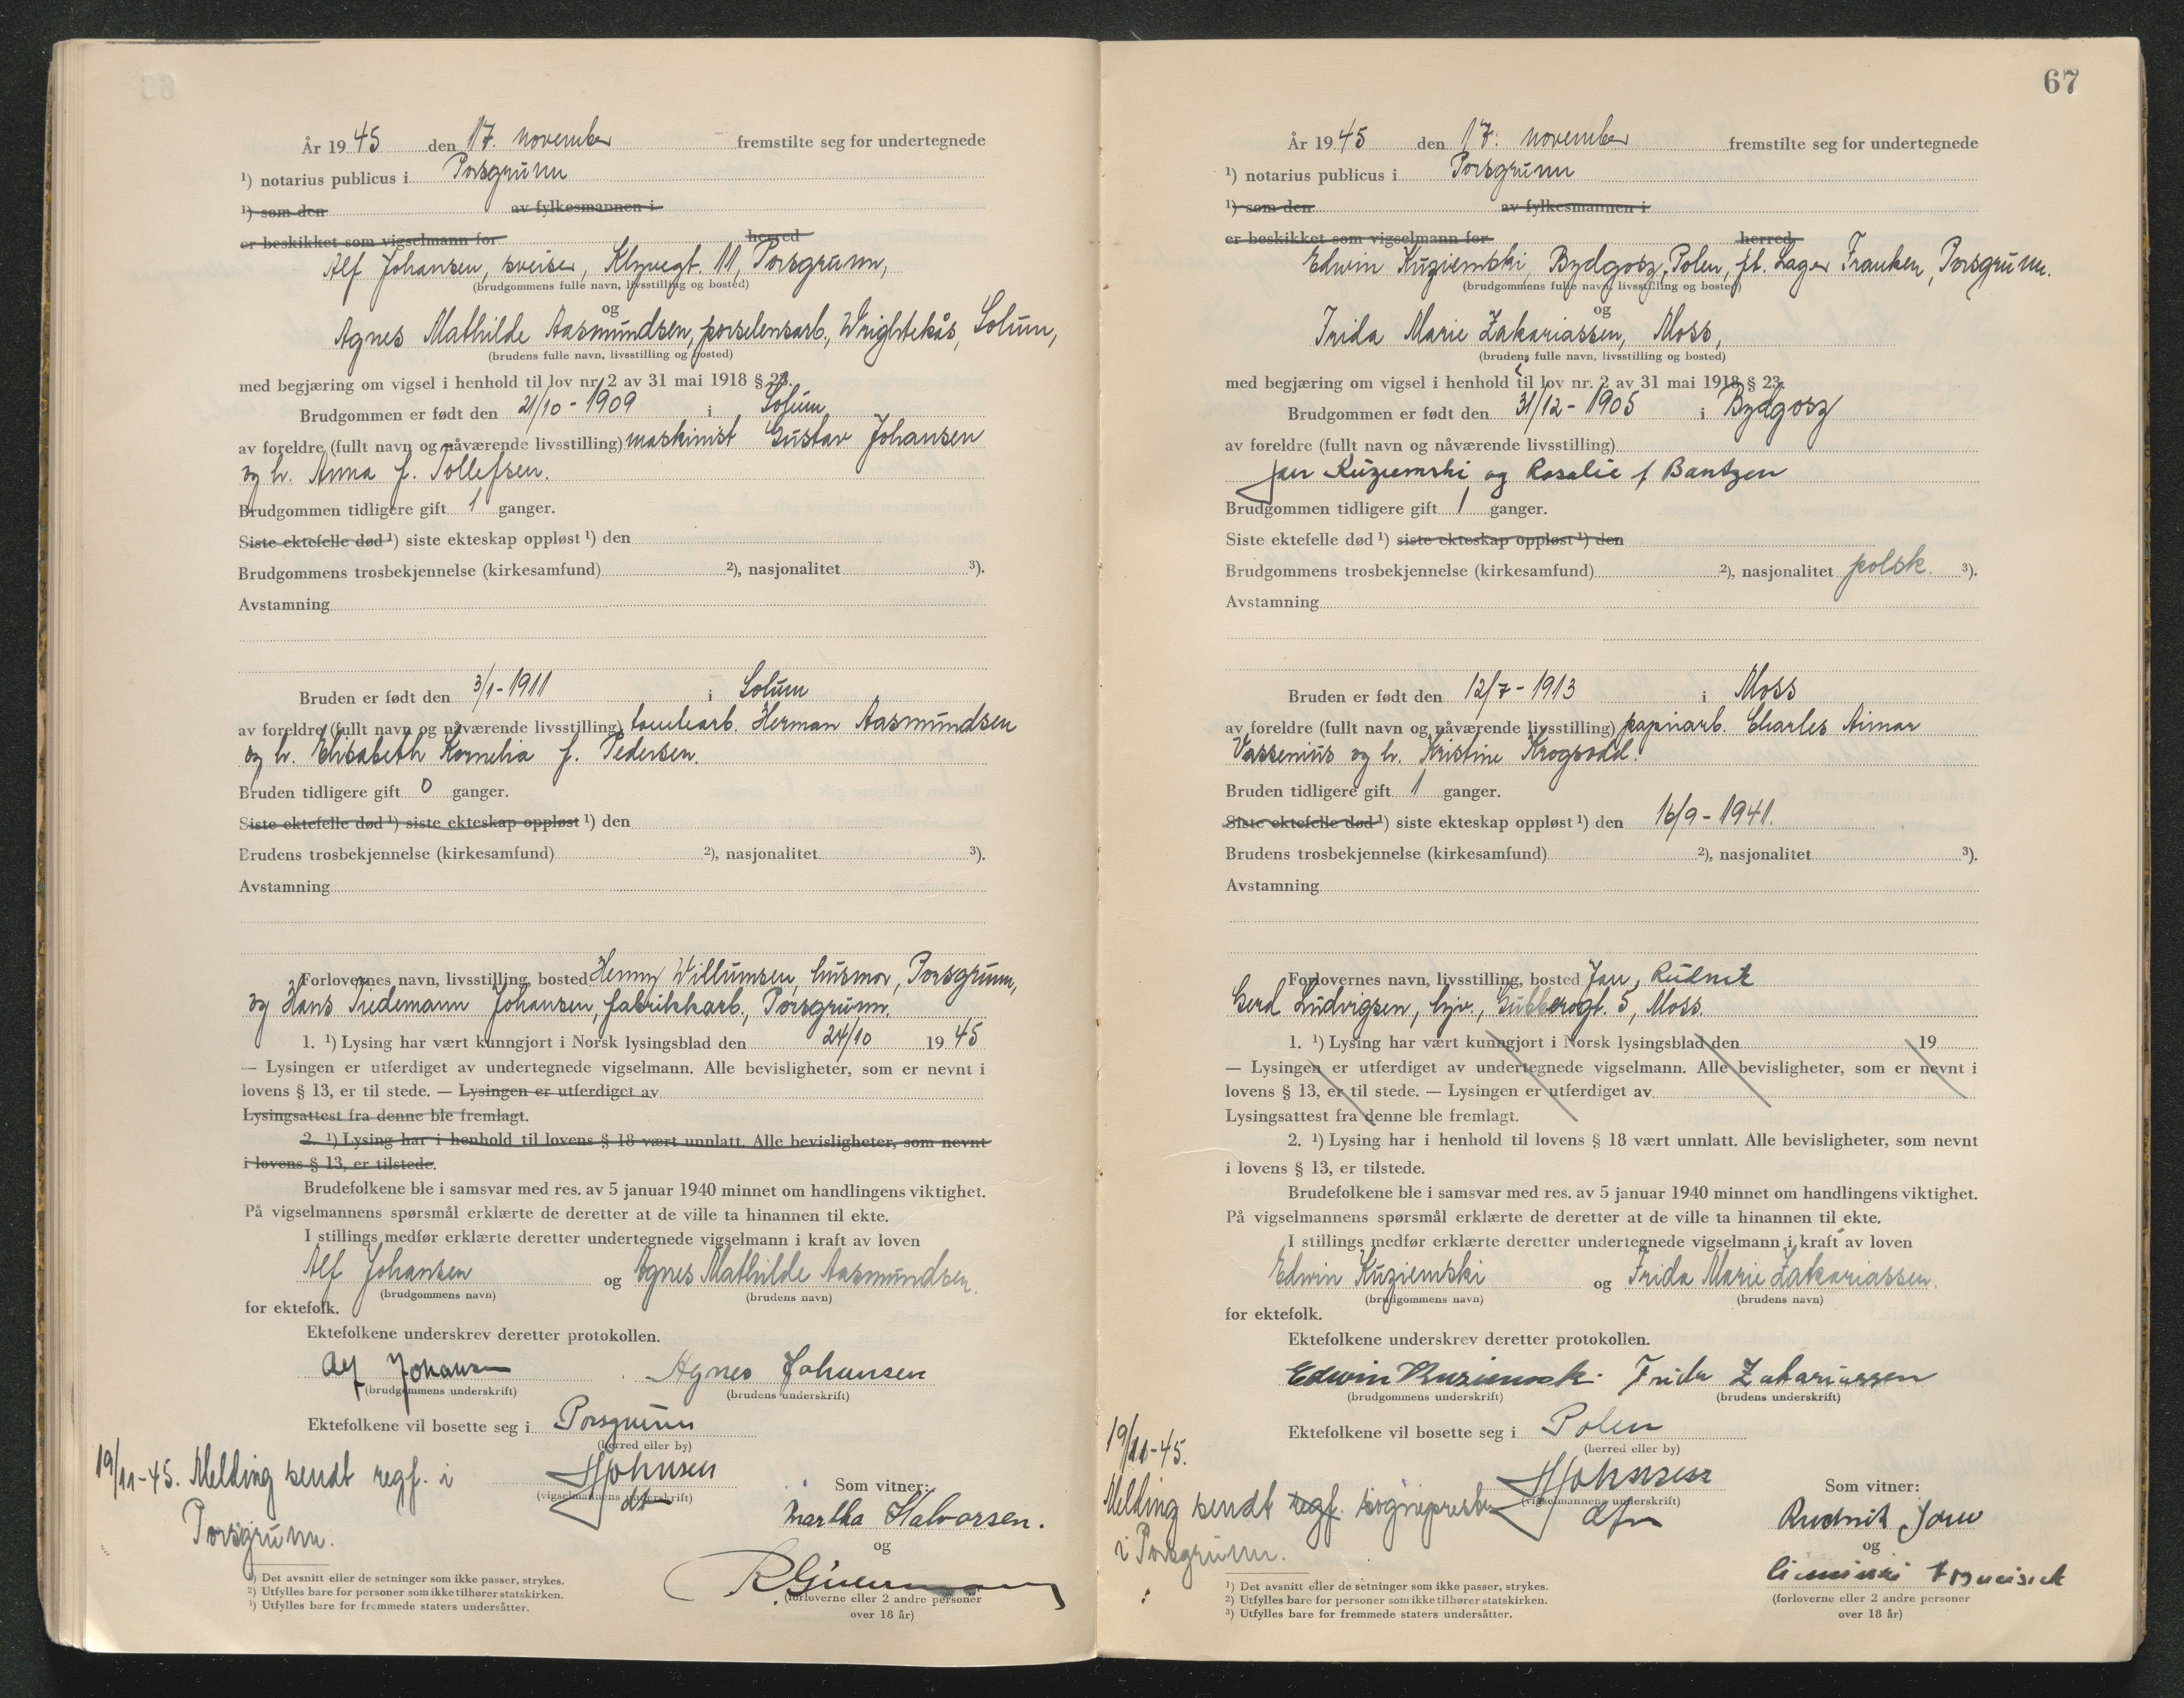 År 1945 den 17. november fremstilte seg for undertegnede
¹) notarius publicus i Porsgrunn
¹) som den av fylkesmannen i
er beskikket som vigselmann for herred
Alf Johansen, sveiser, Klyvegt. 11, Porsgrunn,
(brudgommens fulle navn, livsstilling og bosted)
og
Agnes Mathilde Aasmundsen, porselensarb., Wrightekås, Solum,
(brudens fulle navn, livsstilling og bosted)
med begjæring om vigsel i henhold til lov nr. 2 av 31 mai 1918 § 23.
Brudgommen er født den 21/10 - 1909 i Solum
av foreldre (fullt navn og nåværende livsstilling) maskinist Gustav Johansen
og h. Anna f. Tollefsen.
Brudgommen tidligere gift 1 ganger.
Siste ektefelle død ¹) siste ekteskap oppløst ¹) den
Brudgommens trosbekjennelse (kirkesamfund) ²), nasjonalitet ³).
Avstamning
Bruden er født den 3/1 - 1911 i Solum
av foreldre (fullt navn og nåværende livsstilling) Herman Aasmundsen
og h. Elisabeth Kornelia f. Pedersen.
Bruden tidligere gift 0 ganger.
Siste ektefelle død ¹) siste ekteskap oppløst ¹) den
Brudens trosbekjennelse (kirkesamfund) ²), nasjonalitet ³).
Avstamning
Forlovernes navn, livsstilling, bosted Henny Willumsen, husmor, Porsgrunn,
og Hans Tiedemann Johansen, fabrikkarb., Porsgrunn.
1. ¹) Lysing har vært kunngjort i Norsk lysingsblad den 24/10 1945
— Lysingen er utferdiget av undertegnede vigselmann. Alle bevisligheter, som er nevnt i
lovens § 13, er til stede. — Lysingen er utferdiget av
Lysingsattest fra denne ble fremlagt.
2. ¹) Lysing har i henhold til lovens § 18 vært unnlatt. Alle bevisligheter, som nevnt
i lovens § 13, er tilstede.
Brudefolkene ble i samsvar med res. av 5 januar 1940 minnet om handlingens viktighet.
På vigselmannens spørsmål erklærte de deretter at de ville ta hinannen til ekte.
I stillings medfør erklærte deretter undertegnede vigselmann i kraft av loven
Alf Johansen og Agnes Mathilde Aasmundsen.
(brudgommens navn) (brudens navn)
for ektefolk.
Ektefolkene underskrev deretter protokollen.
Alf Johansen Agnes Johansen
(brudgommens underskrift) (brudens underskrift)
Ektefolkene vil bosette seg i Porsgrunn
(herred eller by)
19/11-45. Melding sendt regf. i
Porsgrunn.
HJohnsen
(vigselmannens underskrift)
Som vitner:
Martha Halvorsen.
og
(forloverne eller 2 andre personer
over 18 år)
¹) Det avsnitt eller de setninger som ikke passer, strykes.
²) Utfylles bare for personer som ikke tilhører statskirken.
³) Utfylles bare for fremmede staters undersåtter.
67
År 1945 den 17. november fremstilte seg for undertegnede
¹) notarius publicus i Porsgrunn
¹) som den av fylkesmannen i
er beskikket som vigselmann for herred
Edwin Kuziemski, Bydgosz, Polen, pt. Lager Franken, Porsgrunn.
(brudgommens fulle navn, livsstilling og bosted)
og
Frida Marie Zakariassen, Moss,
(brudens fulle navn, livsstilling og bosted)
med begjæring om vigsel i henhold til lov nr. 2 av 31 mai 1918 § 23.
Brudgommen er født den 31/12 - 1905 i Bydgosz
av foreldre (fullt navn og nåværende livsstilling)
Jan Kuziemski og Rosalie f Bantzen
Brudgommen tidligere gift 1 ganger.
Siste ektefelle død ¹) siste ekteskap oppløst ¹) den
Brudgommens trosbekjennelse (kirkesamfund) ²), nasjonalitet polsk. ³).
Avstamning
Bruden er født den 12/7 - 1913 i Moss
av foreldre (fullt navn og nåværende livsstilling) papirarb. Charles Aimar
Vassenius og h. Kristine Krogsodd.
Bruden tidligere gift 1 ganger.
Siste ektefelle død ¹) siste ekteskap oppløst ¹) den 16/9 - 1941.
Brudens trosbekjennelse (kirkesamfund) ²), nasjonalitet ³).
Avstamning
Forlovernes navn, livsstilling, bosted Jan, Rudnik
Gerd Ludvigsen, 5, Moss.
1. ¹) Lysing har vært kunngjort i Norsk lysingsblad den 19
— Lysingen er utferdiget av undertegnede vigselmann. Alle bevisligheter, som er nevnt i
lovens § 13, er til stede. — Lysingen er utferdiget av
Lysingsattest fra denne ble fremlagt.
2. ¹) Lysing har i henhold til lovens § 18 vært unnlatt. Alle bevisligheter, som nevnt
i lovens § 13, er tilstede.
Brudefolkene ble i samsvar med res. av 5 januar 1940 minnet om handlingens viktighet.
På vigselmannens spørsmål erklærte de deretter at de ville ta hinannen til ekte.
I stillings medfør erklærte deretter undertegnede vigselmann i kraft av loven
Edwin Kuziemski og Frida Marie Zakariassen.
(brudgommens navn) (brudens navn)
for ektefolk.
Ektefolkene underskrev deretter protokollen.
Edwin Kuziemski Frida Zakariassen
(brudgommens underskrift) (brudens underskrift)
Ektefolkene vil bosette seg i Polen
(herred eller by)
19/11-45.
Melding sendt regf. sogneprest
i Porsgrunn.
HJohnsen
(vigselmannens underskrift)
Som vitner:
Rudnik Jan
og
Franciszek
(forloverne eller 2 andre personer
over 18 år)
¹) Det avsnitt eller de setninger som ikke passer, strykes.
²) Utfylles bare for personer som ikke tilhører statskirken.
³) Utfylles bare for fremmede staters undersåtter.